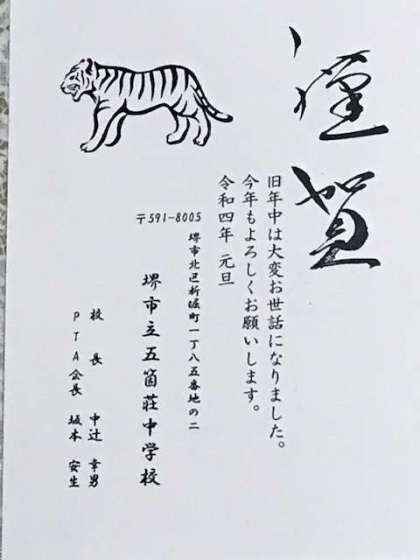 謹賀
旧年中は大変お世話になりました。
今年もよろしくお願いします。
令和四年 元旦
〒591-8005
堺市北区新堀町一丁八五番地の二
堺市立五箇荘中学校
校長 中辻 幸男
PTA会長 坂本 安生